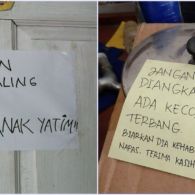 N
ALING
NAK YATIM!!
JANGAN
DIANGKA
ADA KECO
TERBANG
BIARKAN DIA KEHAB
NAPAS. TERIMA KASIH